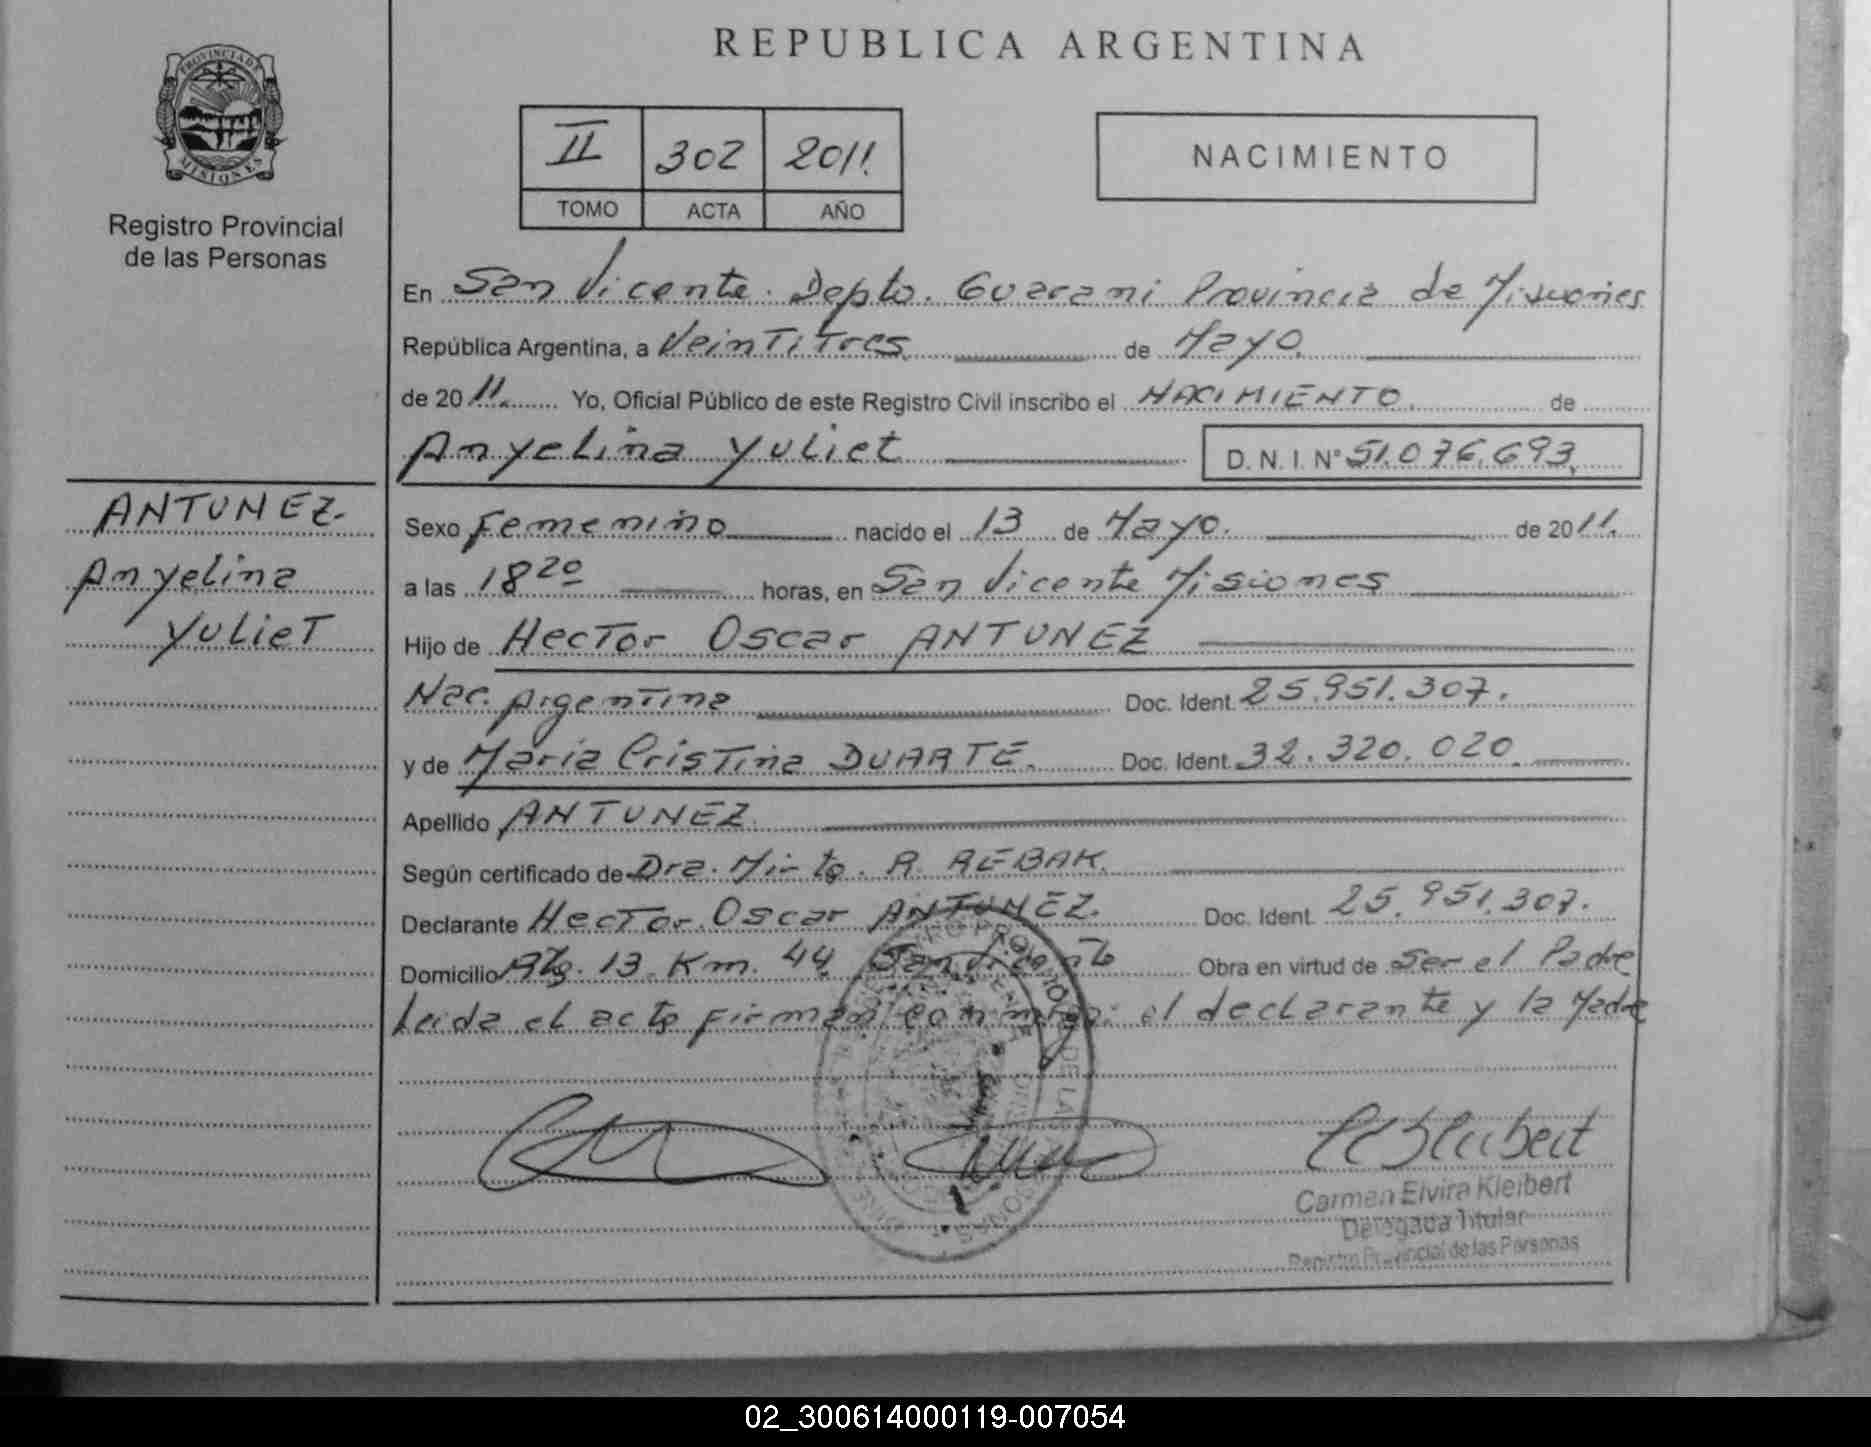 REPUBLICA ARGENTINA
PROVINCIA DE MISIONES
Registro Provincial
de las Personas
II 302 2011.
TOMO ACTA AÑO
NACIMIENTO
En San Vicente. Depto. Guarani Provincia de Misiones
República Argentina, a Veintitres de Mayo.
de 2011. Yo, Oficial Público de este Registro Civil inscribo el NACIMIENTO. de
Anyelina Yuliet D. N. I. N° 51.076.693.
ANTUNEZ.
Anyelina
Yuliet
Sexo Femenino nacido el 13 de Mayo. de 2011.
a las 18 20 horas, en San Vicente Misiones
Hijo de Hector Oscar ANTUNEZ
Nac. Argentina Doc. Ident. 25.951.307.
y de Maria Cristina DUARTE. Doc. Ident. 32.320.020.
Apellido ANTUNEZ.
Según certificado de Dra. R. REBAK.
Declarante Hector Oscar ANTUNEZ. Doc. Ident. 25.951.307.
Domicilio 13 Km. 44 San Vicente Obra en virtud de Ser el Padre
Leida el acta firman conmigo: el declarante y la Madre
Carmen Elvira Kleibert
Delegada Titular
Registro Provincial de las Personas
02_300614000119-007054